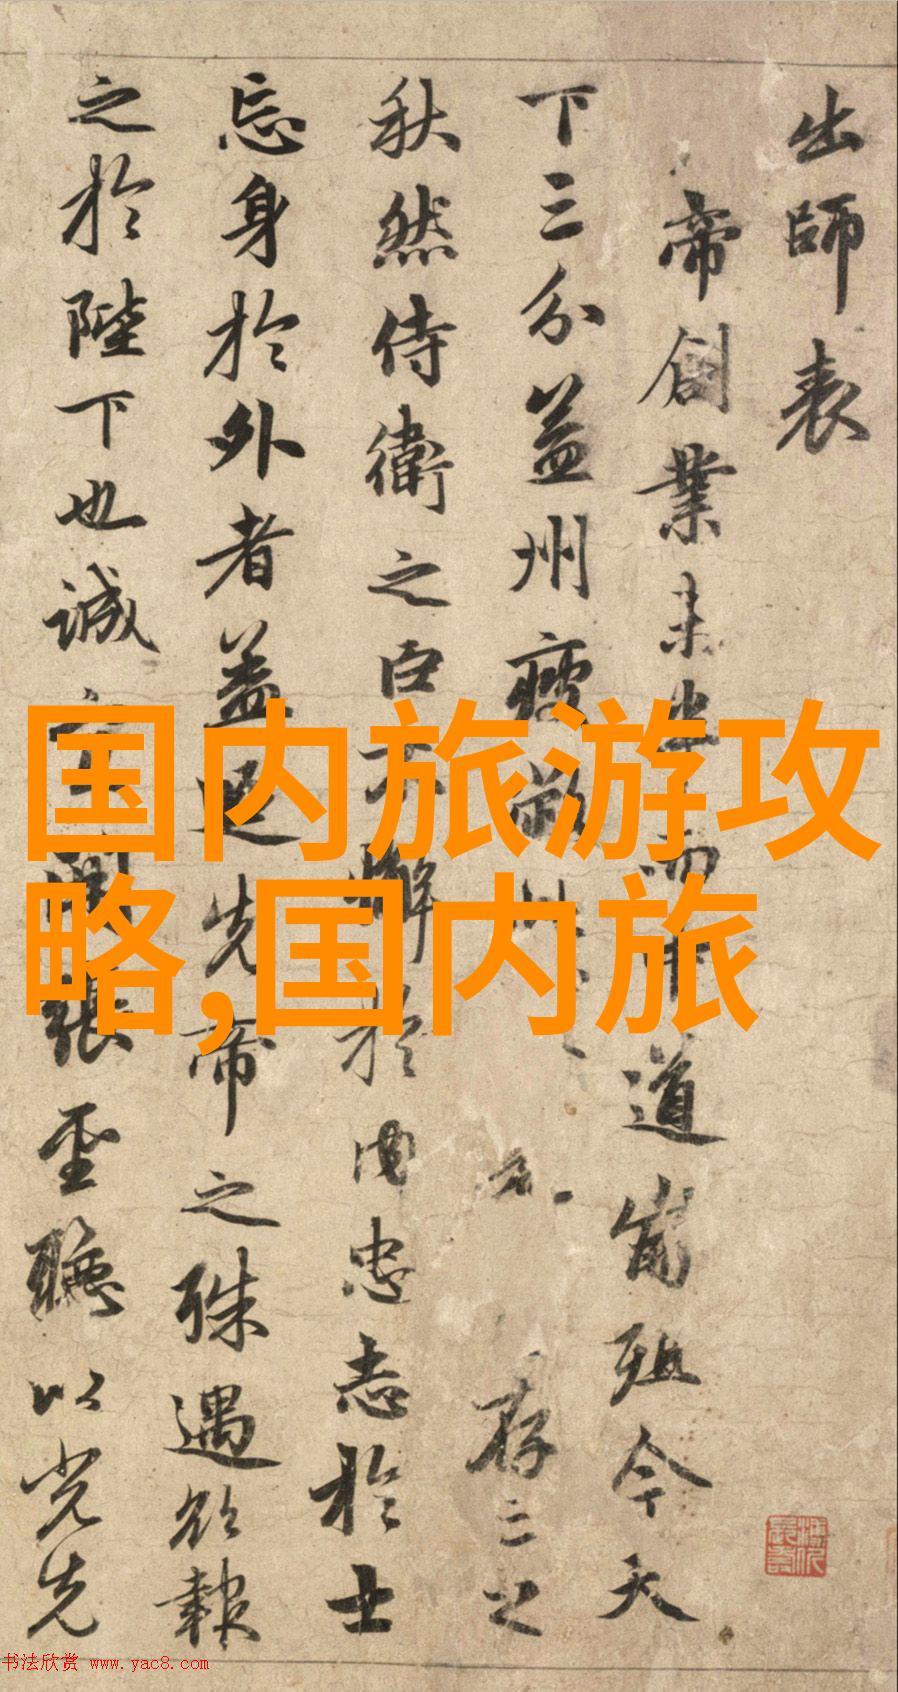 出師表
帝創業未半而中道崩殂今天
下三分益州疲敝 存亡之
秋然侍衛之臣不懈於内忠志於士
忘身於外者蓋追先帝之殊遇欲報
之於陛下也誠宜開張聖聽以光先
国内旅游攻
略,国内旅
书法欣赏 www.yac8.com